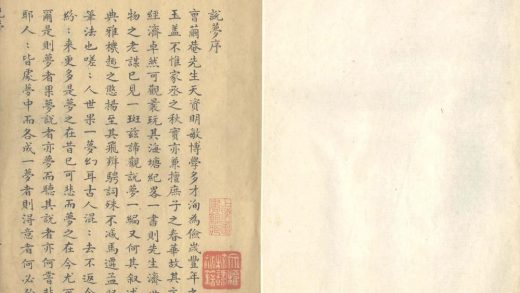 說夢序
曹繭菴先生天資明敏博學多才洵為儉歲豐年之
玉蓋不惟家丞之秋實亦兼擅庶子之春華故其文
經濟卓然可觀最玩其海塘紀畧一書則先生濟
物之老謀已見一斑茲諦觀說夢一編又何其叙
典雅機趣之憨揚至其飛辯騁詞殊不減馬遷孟
筆法也嗟:人世果一夢幻耳古人混:去不返今
紛:來更多是夢之在昔已可悲而夢之在今尤可
爾是則夢者果夢說者亦夢而聽其說者亦何嘗
耶人:皆處夢中而各成一夢者則得意者何必